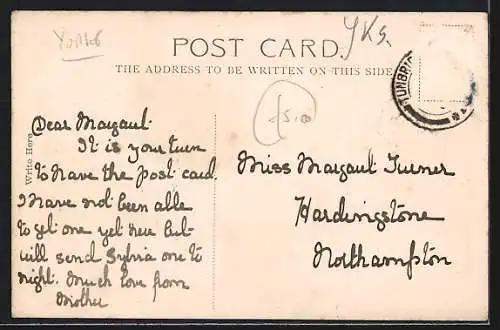 Yks.
POST CARD.
THE ADDRESS TO BE WRITTEN ON THIS SIDE
TUNBRI
Write Here
Dear Margaret
It is your turn
to have the post card.
I have not been able
to get one yet here but
will send Sylvia one to
night. Much love from
Mother
Miss Margaret Turner
Hardingstone
Northampton